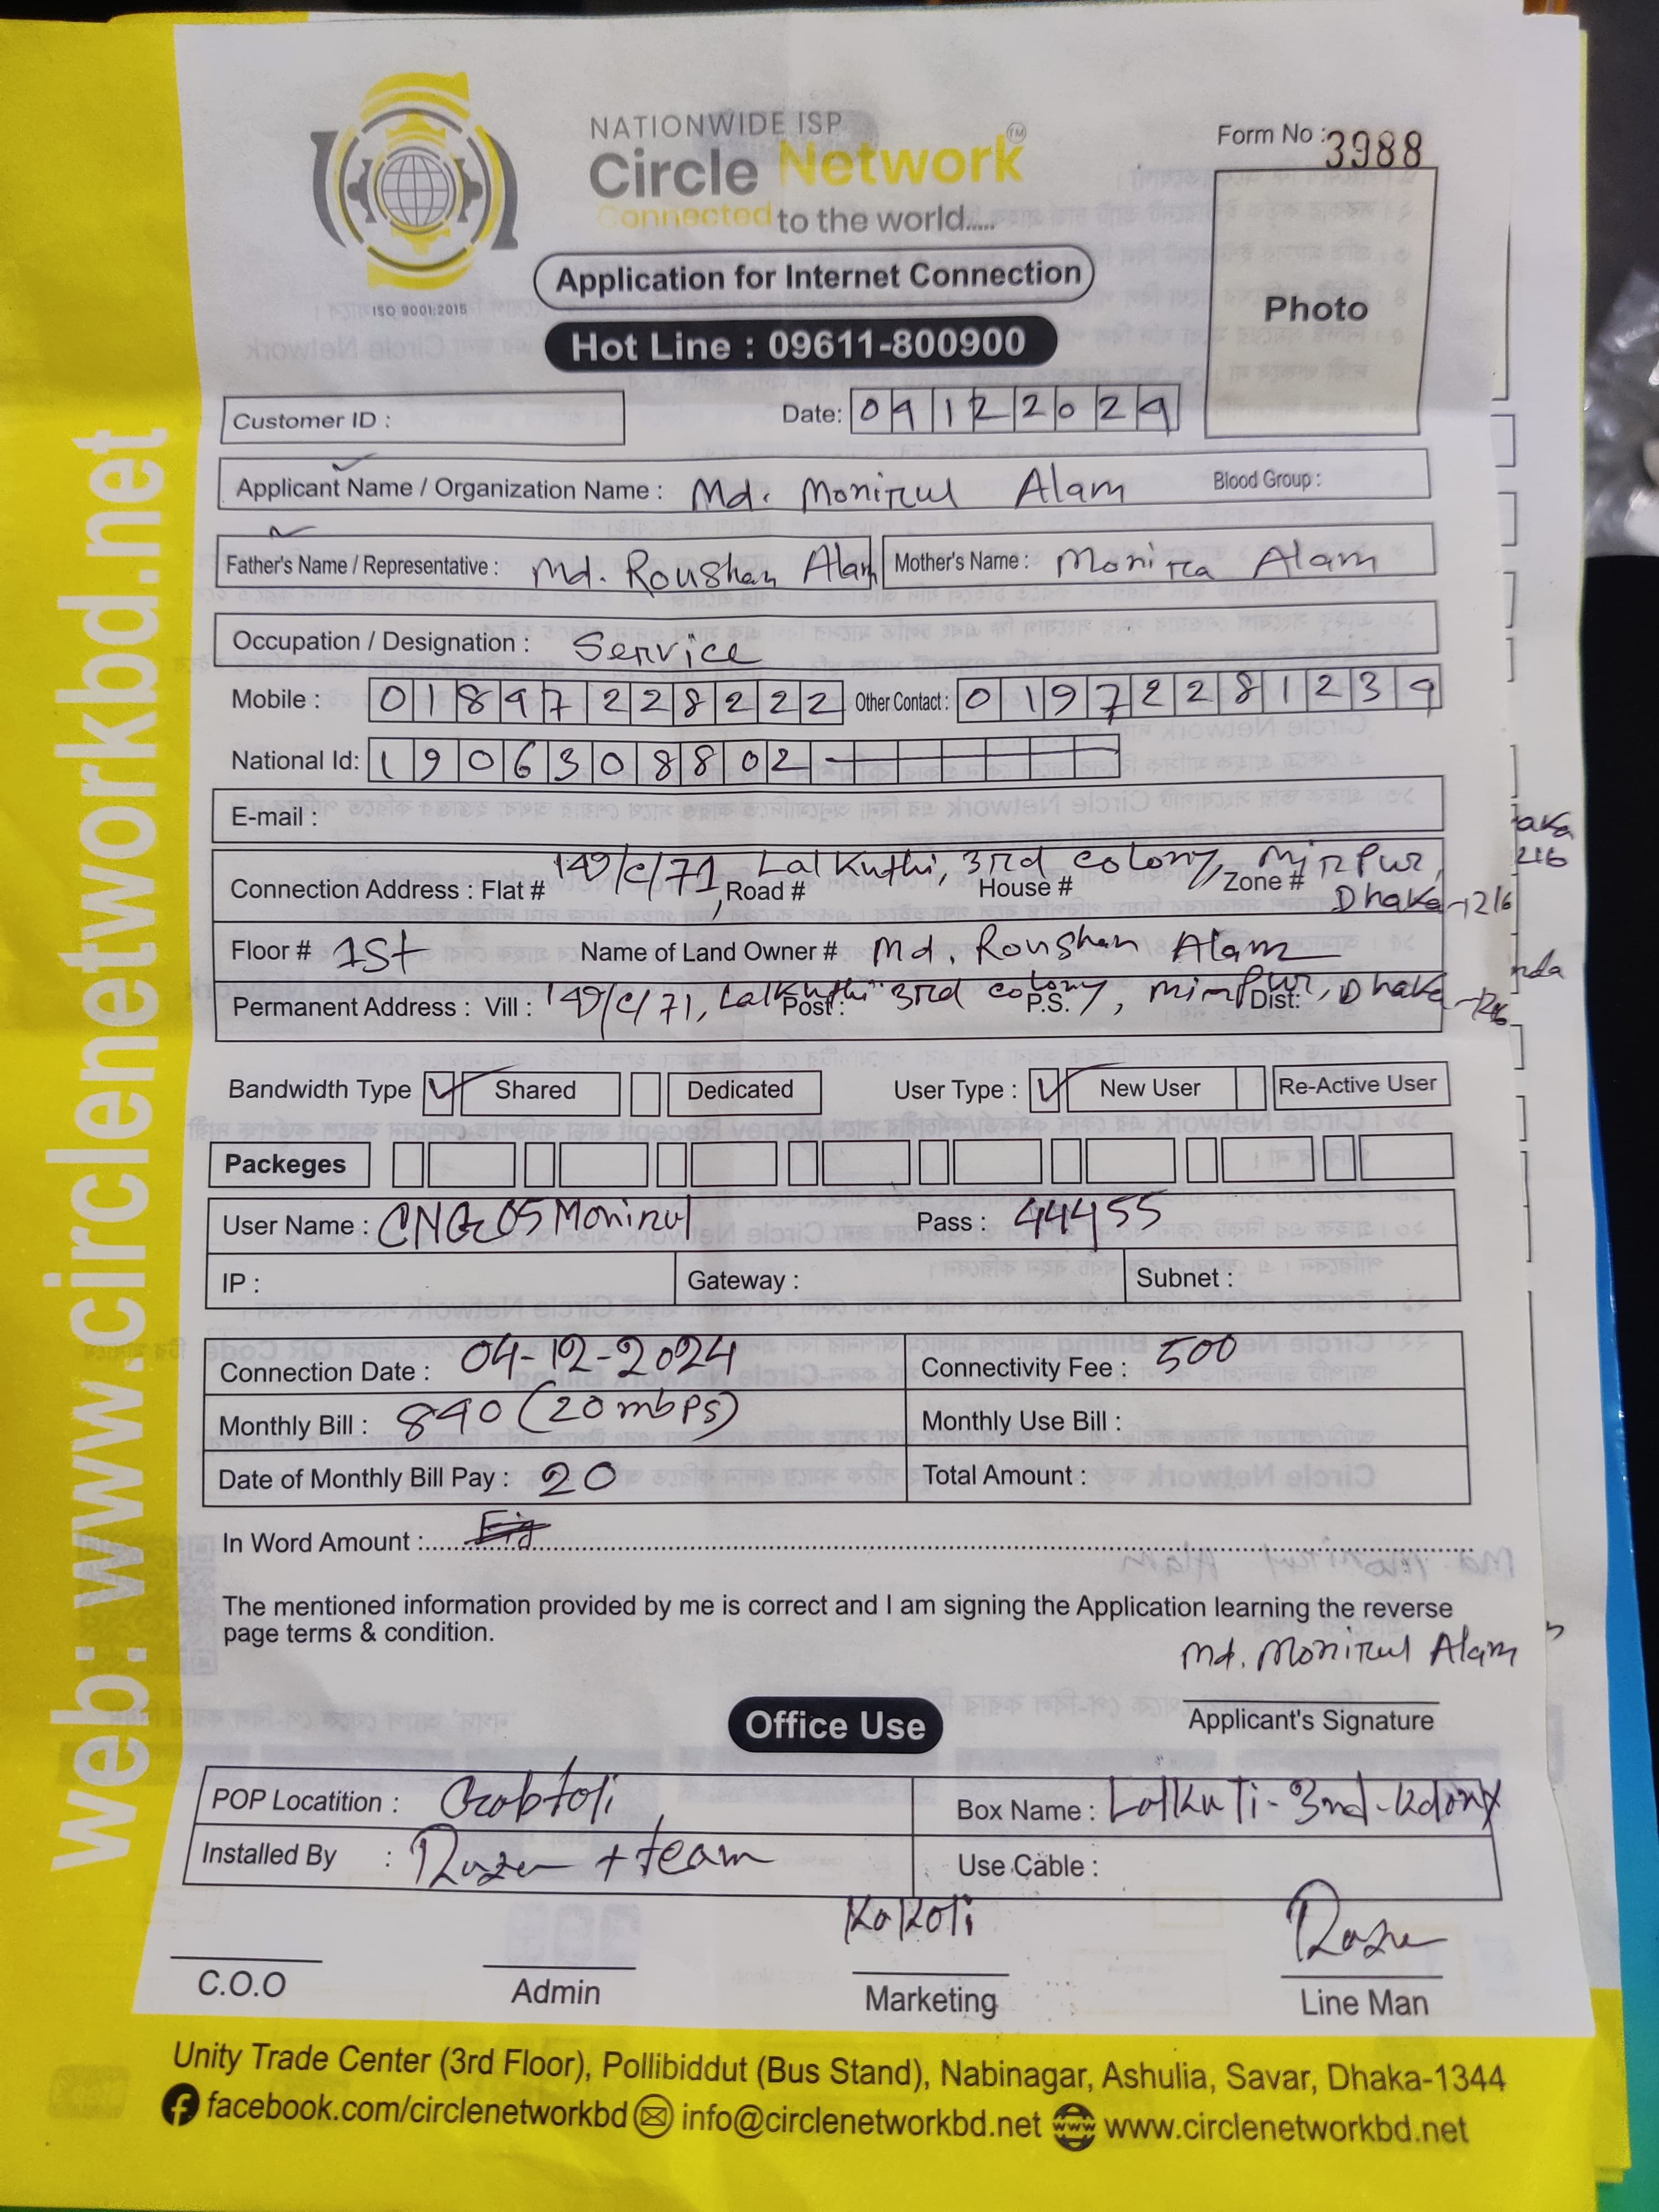 web: www.circlenetworkbd.net
NATIONWIDE ISP
Circle Network TM
Connected to the world.....
ISO 9001:2015
Form No : 3988
Application for Internet Connection
Photo
Hot Line : 09611-800900
Customer ID :
Date: 04122024
Applicant Name / Organization Name : Md. Monirul Alam Blood Group :
Father's Name / Representative : Md. Roushan Alam Mother's Name : Monira Alam
Occupation / Designation : Service
Mobile : 01897228222 Other Contact : 01972281239
National Id: 1906308802
E-mail :
Connection Address : Flat # 149/C/71, Road # Lalkuthi, 3rd colony, House # Zone # Mirpur,
Dhaka-1216
Floor # 1st Name of Land Owner # Md. Roushan Alam
Permanent Address : Vill : 149/C/71, Lalkuthi Post : 3rd colony, P.S. Mirpur, Dist: Dhaka-1216
Bandwidth Type Shared Dedicated User Type : New User Re-Active User
Packeges
User Name : CNG05Monirul Pass : 44455
IP : Gateway : Subnet :
Connection Date : 04-12-2024 Connectivity Fee : 500
Monthly Bill : 840 (20mbps) Monthly Use Bill :
Date of Monthly Bill Pay : 20 Total Amount :
In Word Amount :
The mentioned information provided by me is correct and I am signing the Application learning the reverse
page terms & condition.
Md. Monirul Alam
Applicant's Signature
Office Use
POP Locatition : Gabtoli Box Name : Lalkuti-3nd-kolony
Installed By : Razu + team Use Cable :
Kakoli Razu
C.O.O Admin Marketing Line Man
Unity Trade Center (3rd Floor), Pollibiddut (Bus Stand), Nabinagar, Ashulia, Savar, Dhaka-1344
facebook.com/circlenetworkbd info@circlenetworkbd.net www.circlenetworkbd.net